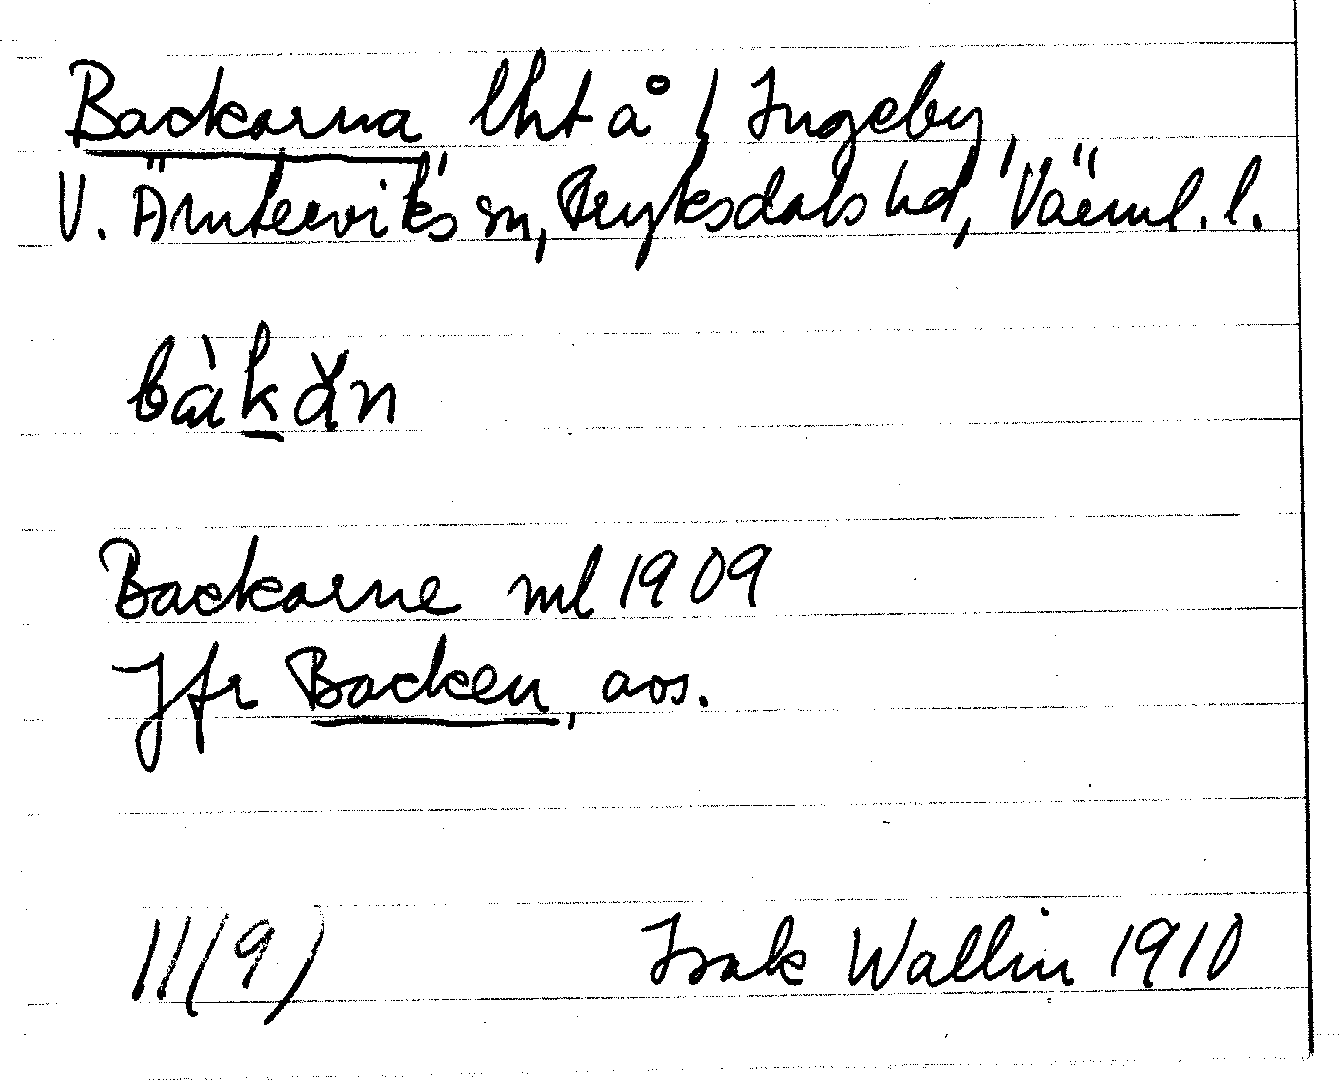 Backarna lht å 1 Ingeby,
V. Ämterviks sn, Fryksdals hd, Värml. l.
bàkăn
Backarne ml 1909
Jfr Backen, aos.
11(9) Isak Wallin 1910